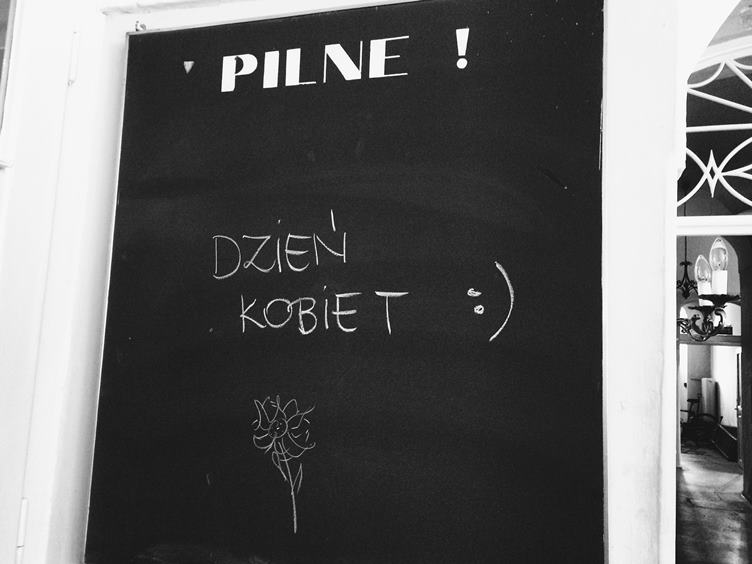 PILNE !
DZIEŃ
KOBIET :)